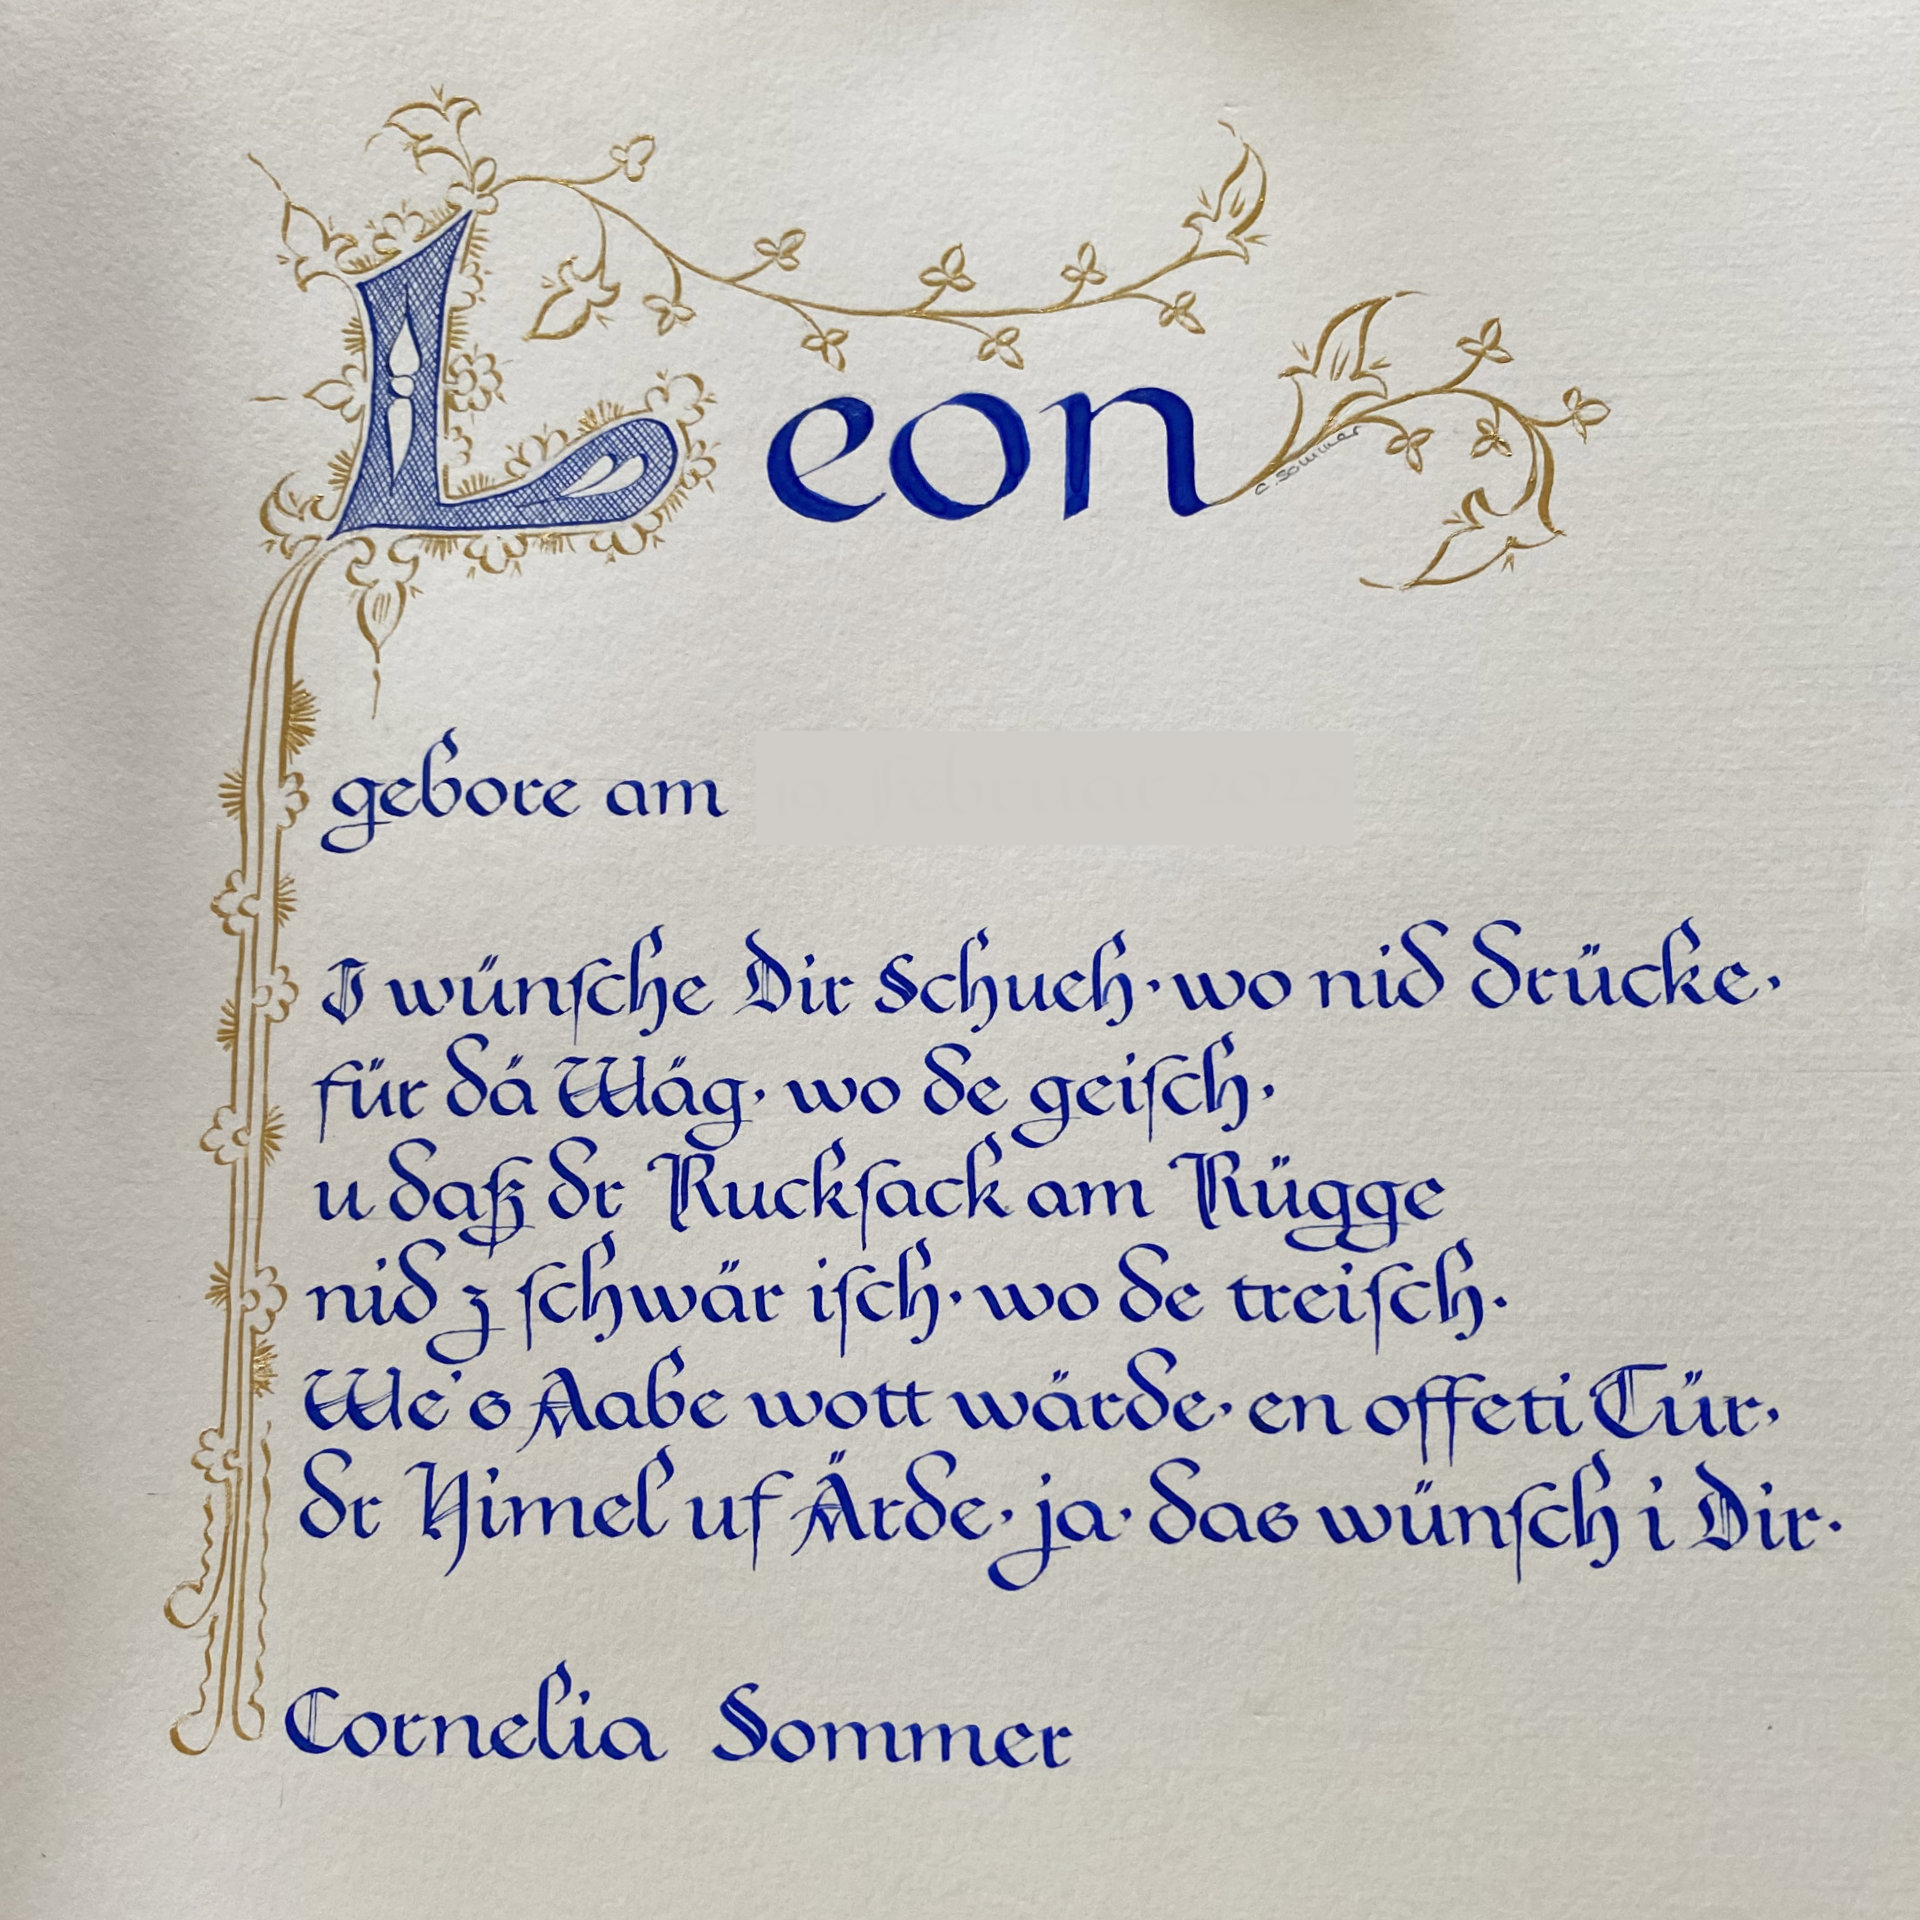 Leon
C. Sommer
gebore am
I wünsche Dir Schueh, wo nid drücke,
für dä Wäg, wo de geisch,
u daß dr Rucksack am Rügge
nid z schwär isch, wo de treisch.
We's Aabe wott wärde, en offeti Tür,
dr Himel uf Ärde, ja, das wünsch i Dir.
Cornelia Sommer